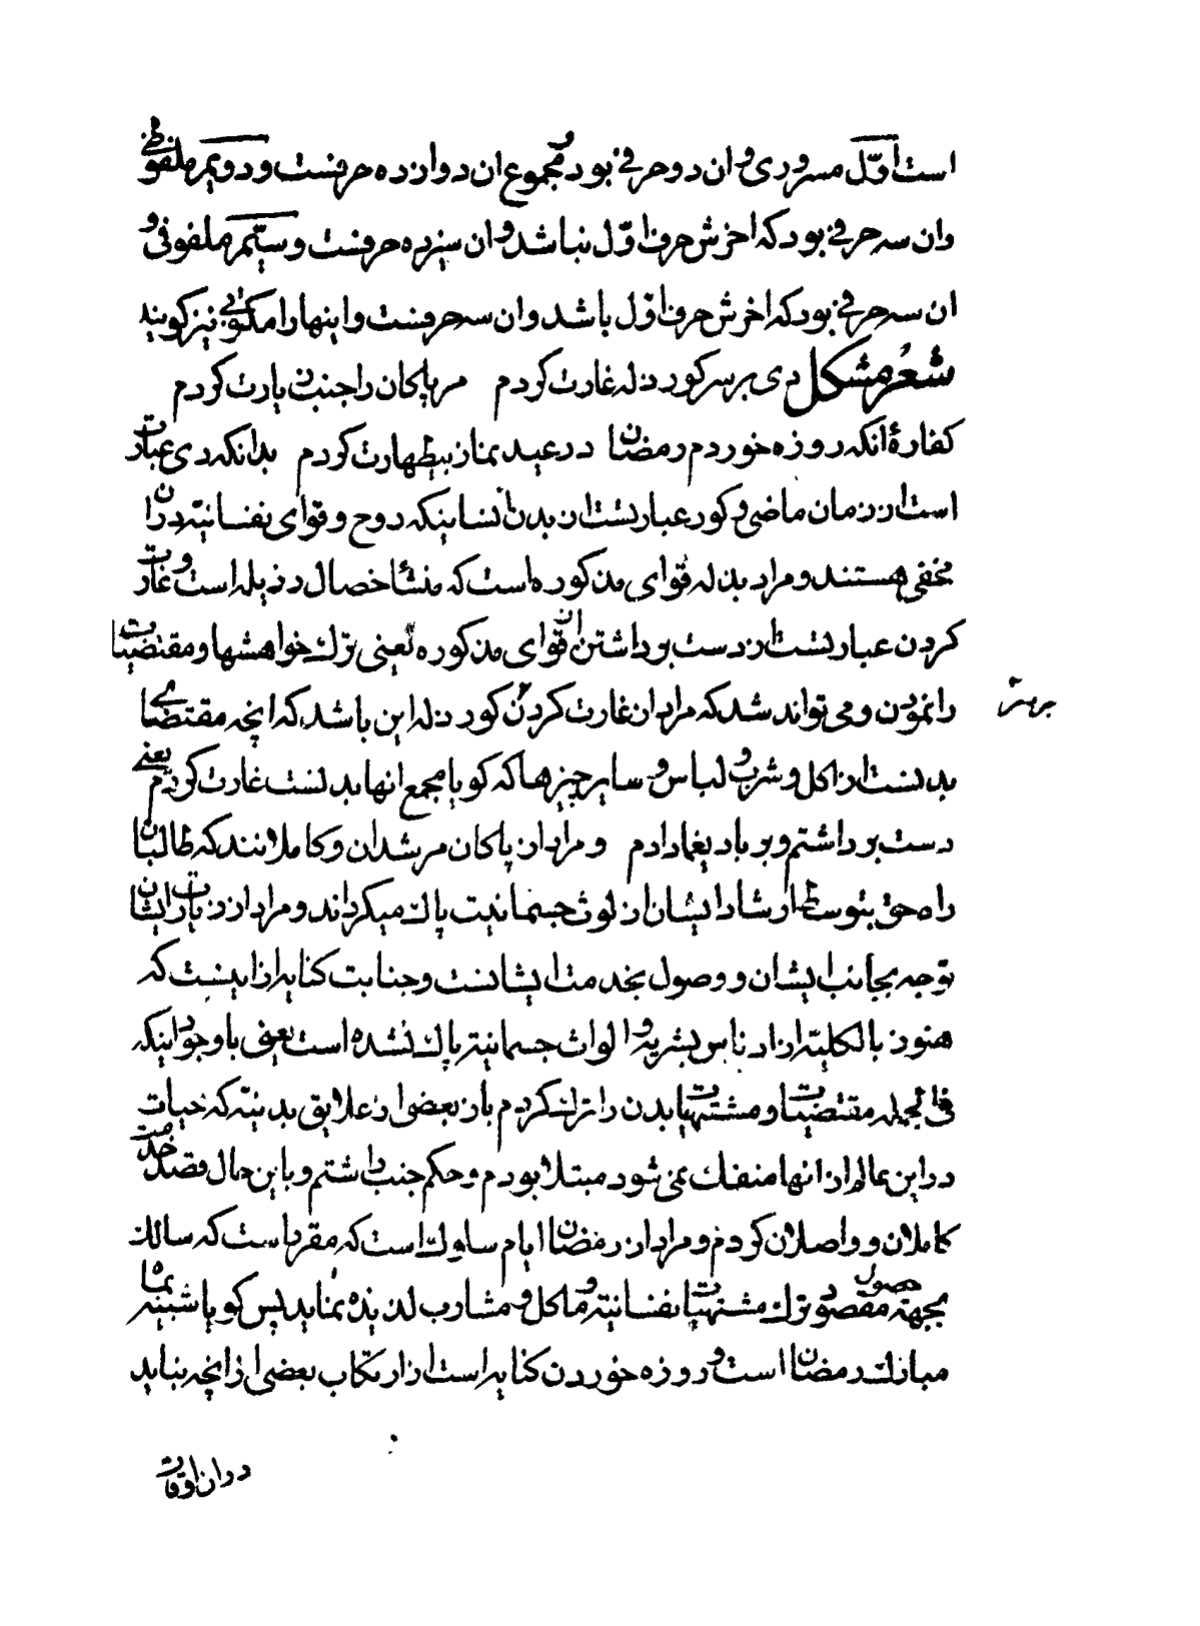 است اوّل مسروری و ان دو حرفی بود و مجموع ان دوازده حرفست و دویم ملفوظی
وان سه حرفی بود که اخرش حرف اوّل نباشد و ان سیزده حرفست و سیّم ملفوفی و
ان سه حرفی بود که اخرش حرف اوّل باشد وان سه حرفست و اینها را مکتوبی نیز کویند
شعر مشکل دی بر سر کور دله غارت کردم مر پاکان را جنب زیارت کردم
کفارهٔ انکه روزه خوردم رمضان در عید نماز بیطهارت کردم بدانکه دی عبارت
است از زمان ماضی و کور عبارتست از بدن انسانی که روح و قوای نفسانیّه در ان
مخفی هستند و مراد بدله قوای مذکوره است که منشأ خصال رذیله است و غارت
کردن عبارتست از دست برداشتن از ان قوای مذکوره یعنی ترک خواهشها و مقتضیات
را نمودن و می تواند شد که مراد از غارت کردن کور دله این باشد که انچه مقتضای
بدنست از اکل و شرب و لباس و سایر چیزها که کویا مجمع انها بدنست غارت کردم یعنی
دست برداشتم و بر باد یغما دادم و مراد از پاکان مرشدان و کاملانند که طالبان
راه حق بتوسط ارشاد ایشان از لوث جسمانیت پاک میکرداند و مراد از زیارت ایشان
توجه بجانب ایشان و وصول بخدمت ایشانست و جنابت کنایه از اینست که
هنوز بالکلیّه از ادناس بشریه و الواث جسمانیّه پاک نشده است یعنی با وجود اینکه
فی الجمله مقتضیات و مشتهیات بدن را ترک کردم باز بعضی از علایق بدنیّه که حیات
در این عالم از انها منفک نمی شود مبتلا بودم و حکم جنب داشتم و با این حال قصد خدمت
کاملان و واصلان کردم و مراد از رمضان ایام سلوک است که مقرر است که سالک
بجهة حصول مقصود ترک مشتهیات نفسانیّه و ماکل و مشارب لذیذه نماید پس کویا شبیه بماه
مبارک رمضان است و روزه خوردن کنایه است از ارتکاب بعضی از انچه نباید
در ان اوقات